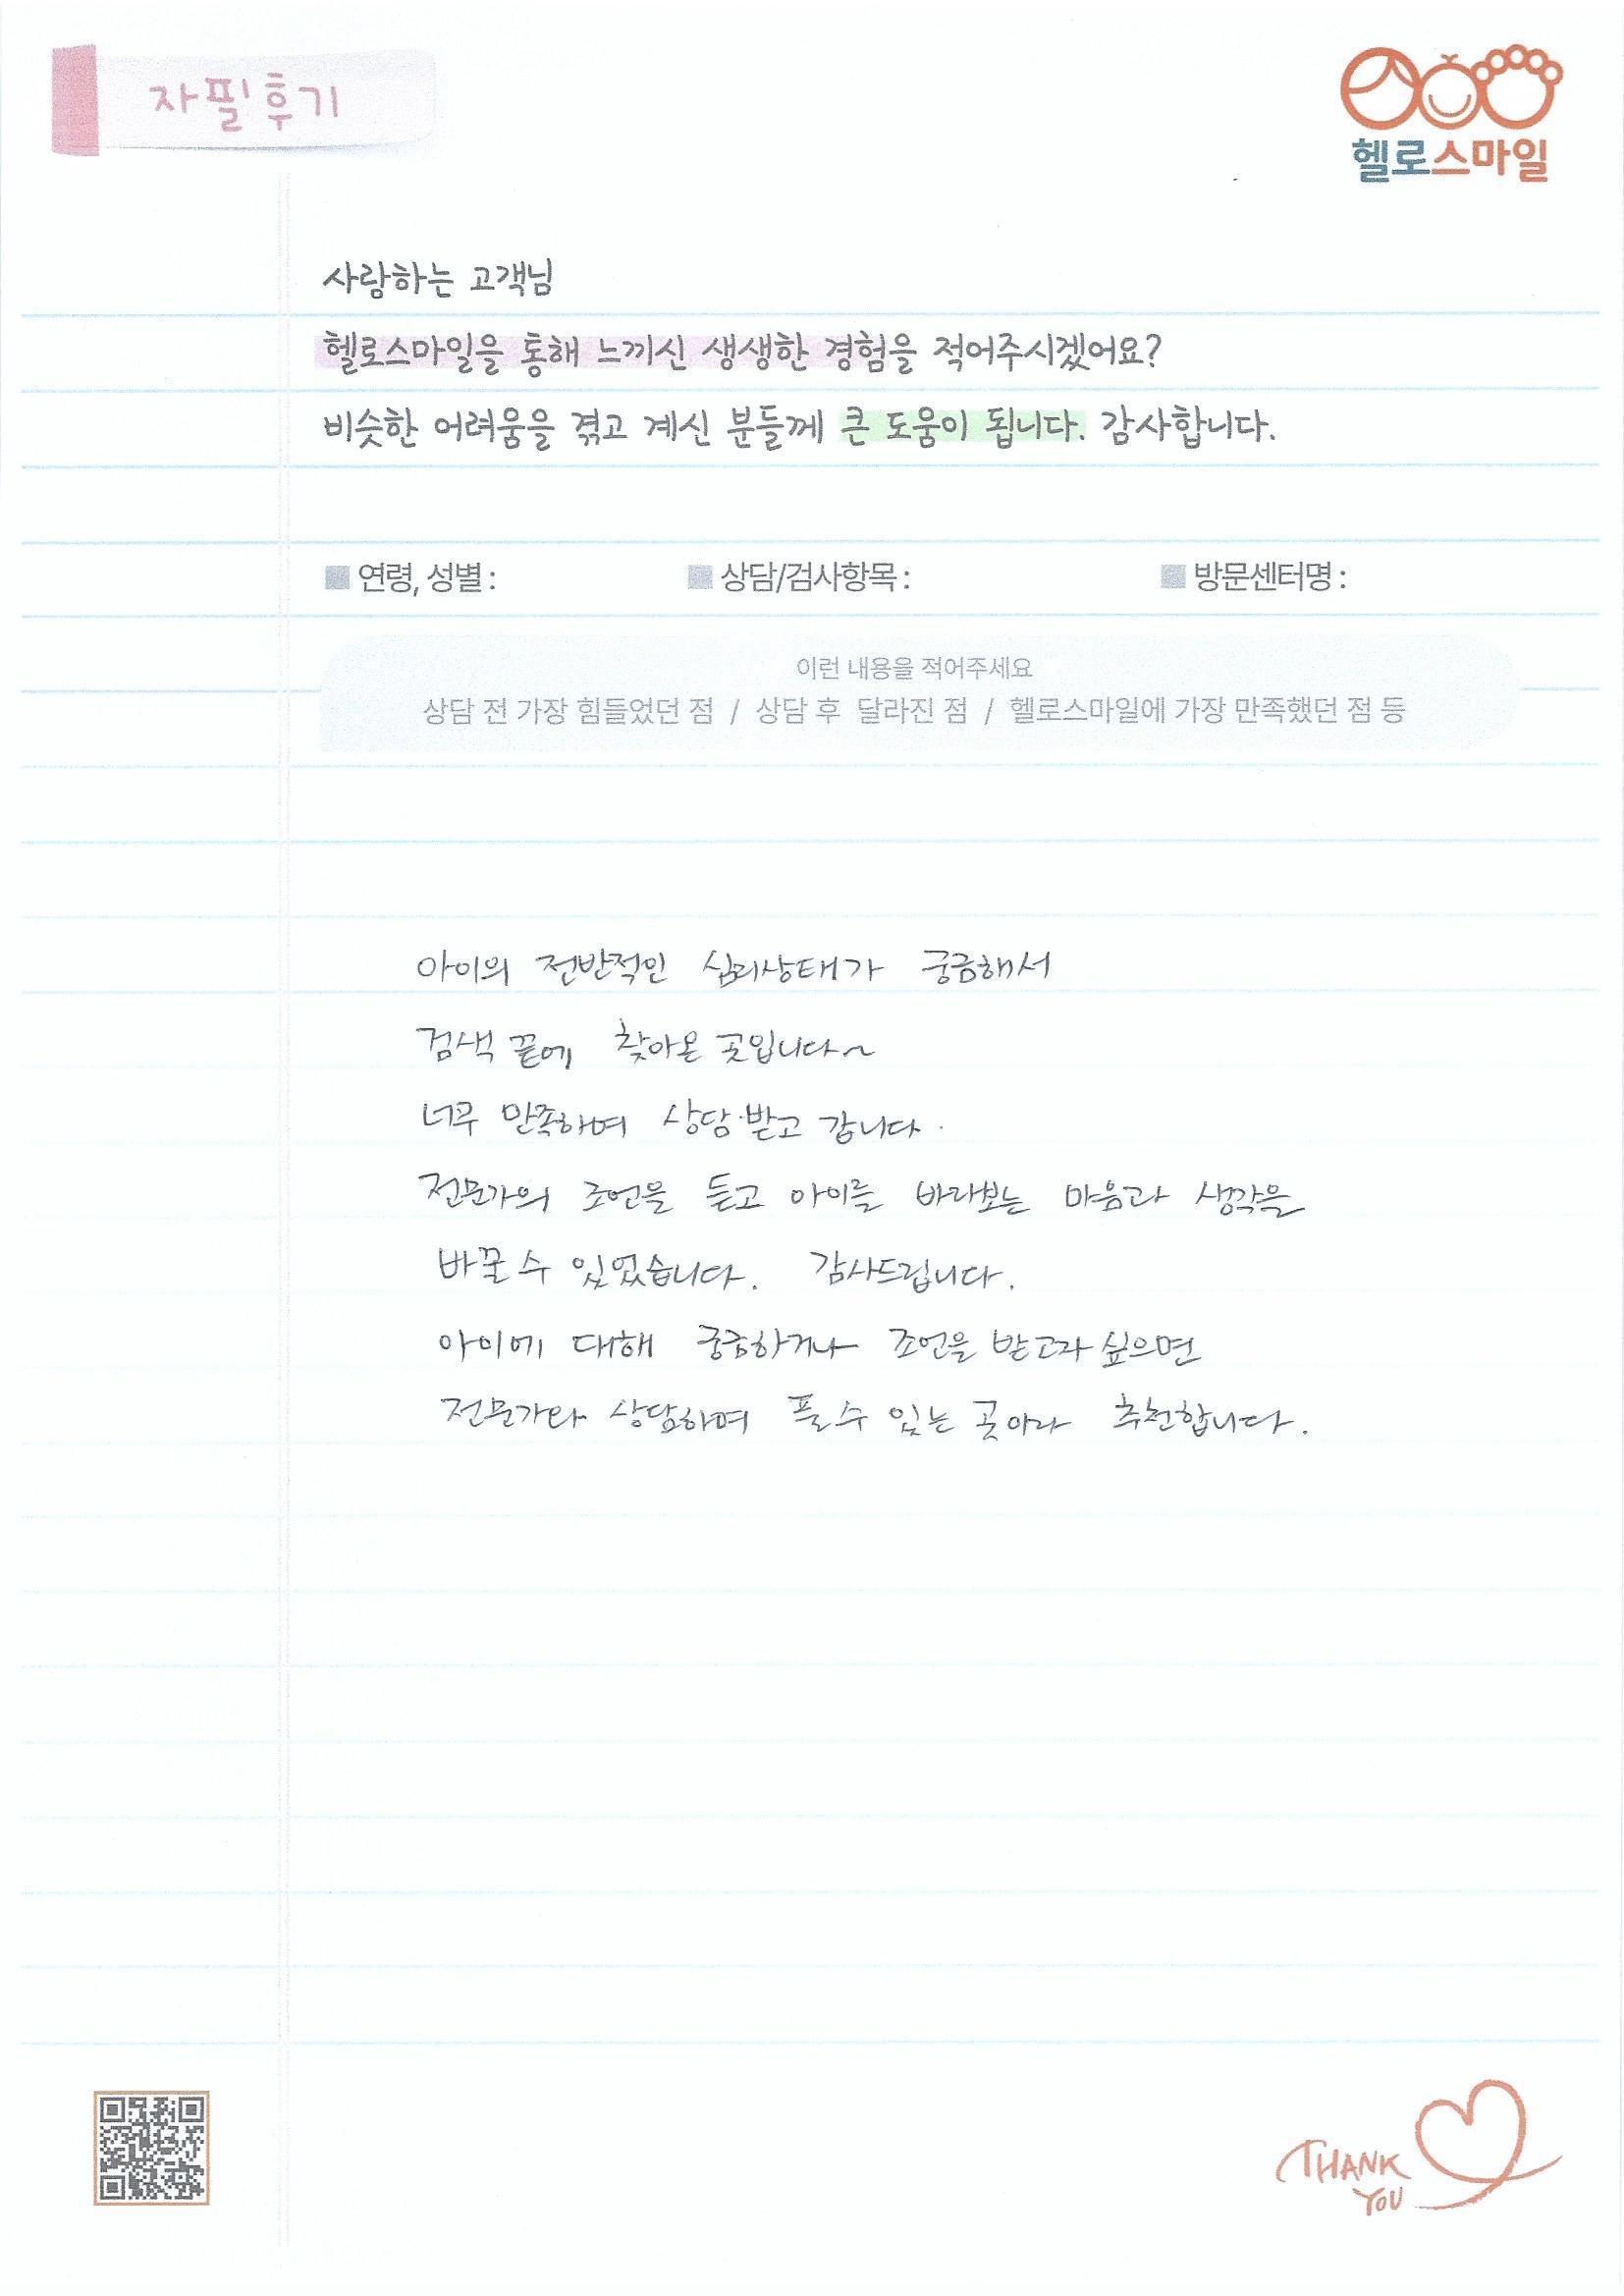 자필후기
헬로스마일
사랑하는 고객님
헬로스마일을 통해 느끼신 생생한 경험을 적어주시겠어요?
비슷한 어려움을 겪고 계신 분들께 큰 도움이 됩니다. 감사합니다.
■ 연령, 성별 : ■ 상담/검사항목 : ■ 방문센터명 :
이런 내용을 적어주세요
상담 전 가장 힘들었던 점 / 상담 후 달라진 점 / 헬로스마일에 가장 만족했던 점 등
아이의 전반적인 심리상태가 궁금해서
검색 끝에 찾아온 곳입니다~
너무 만족하며 상담 받고 갑니다.
전문가의 조언을 듣고 아이를 바라보는 마음과 생각을
바꿀 수 있었습니다. 감사드립니다.
아이에 대해 궁금하거나 조언을 받고자 싶으면
전문가와 상담하며 풀 수 있는 곳이라 추천합니다.
THANK
YOU